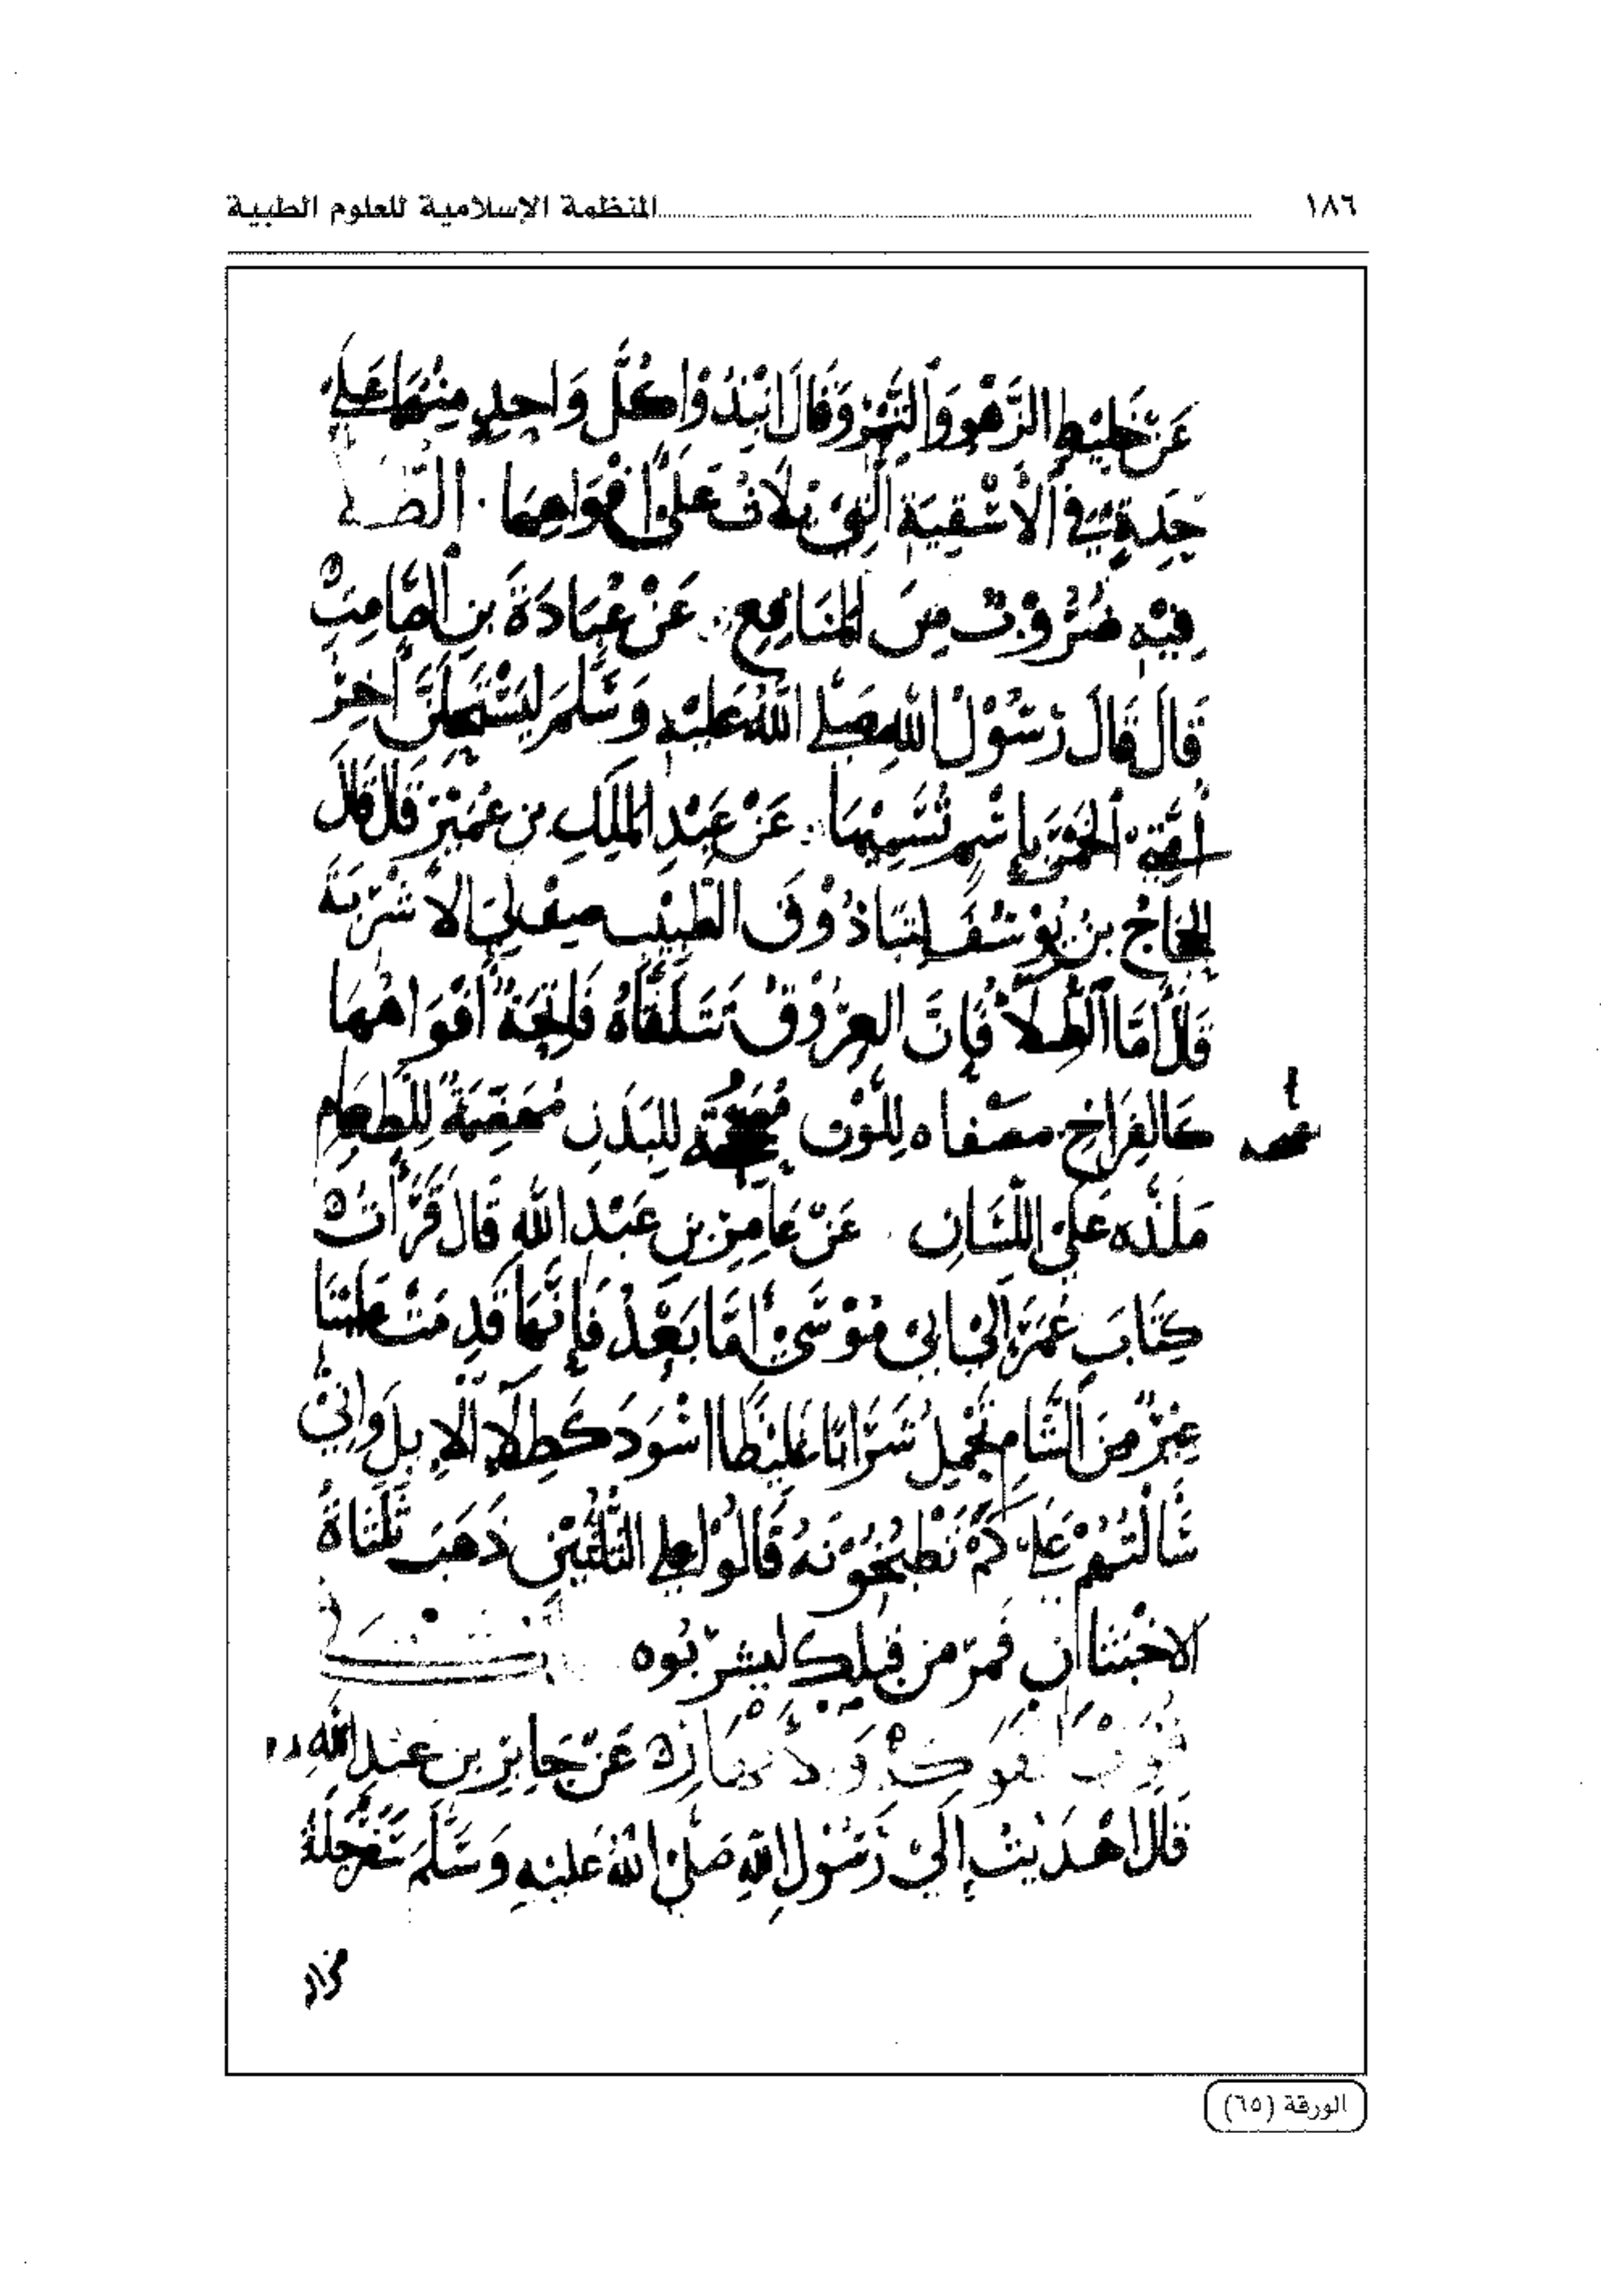 ١٨٦ المنظمة الإسلامية للعلوم الطبية
عَنْ خَلِيْطِ الزَّهْوِ وَالتَّمْرِ وَقَالَ انْبِذُوْا كُلَّ وَاحِدٍ مِنْهُمَا عَلَى
حِدَةٍ فِي الْأَسْقِيَةِ الَّتِي ثلاث عَلَى أَفْوَاهِهَا . الطلا
فِيْهِ ضُرُوْبٌ مِنَ الْمَنَافِعِ عَنْ عُبَادَةَ بنِ الصَّامِتِ
قَالَ قَالَ رَسُوْلُ اللهِ صَلَّى اللهُ عَلَيْهِ وَسَلَّمَ لَيَسْتَحِلَّنَّ آخِرُ
أُمَّتِي الْخَمْرَ بِإِسْمٍ تُسَمِّيْهَا عَنْ عَبْدِ الْمَلِكِ بنِ عُمَيْرٍ قَالَ قَالَ
الحَجَّاجُ بنُ يُوْسُفَ لِتِيَاذُوْقَ الطَّبِيْبِ صِفْ لِيَ الْأَشْرِبَةَ
قَالَ أَمَّا الطِّلَاءُ فَإِنَّ الْعُرُوْقَ تَتَلَقَّاهُ فَاتِحَةً أَفْوَاهَهَا
كَالفِرَاخِ مصفاه لِلَّوْنِ للبَدَنِ لِلطَّعَامِ
مَلَذَّه عَلَى اللِّسَانِ . عَنْ عَامِرِ بنِ عَبْدِ اللهِ قَالَ قَرَأْتُ
كِتَابَ عُمَرَ إِلَى أَبِي مُوْسَى أَمَّا بَعْدُ فَإِنَّهَا قَدِمَتْ عَلَيْنَا
عِيْرٌ مِنَ الشَّامِ تَحْمِلُ شَرَابًا غَلِيْظًا أَسْوَدَ كَطِلَاءِ الْإِبِلِ وَإِنِّي
سَأَلْتُهُمْ عَلَى كَمْ تَطْبُخُوْنَهُ قَالُوْا عَلَى الثُّلُثَيْنِ ذَهَبَ ثُلُثَاهُ
الاخْبَثَانِ فَمُرْ مَنْ قِبَلَكَ ليشربُوه
عَنْ جَابِرِ بنِ عَبْدِ اللهِ
قَالَ اهْدَيْتُ إِلَى رَسُوْلِ اللهِ صَلَّى اللهُ عَلَيْهِ وَسَلَّمَ سَفَرْجَلَةً
الورقة (٦٥)